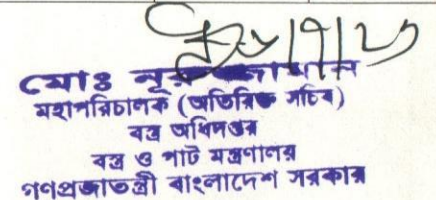 মোঃ নূরুজ্জামান
মহাপরিচালক (অতিরিক্ত সচিব)
বস্ত্র অধিদপ্তর
বস্ত্র ও পাট মন্ত্রণালয়
গণপ্রজাতন্ত্রী বাংলাদেশ সরকার